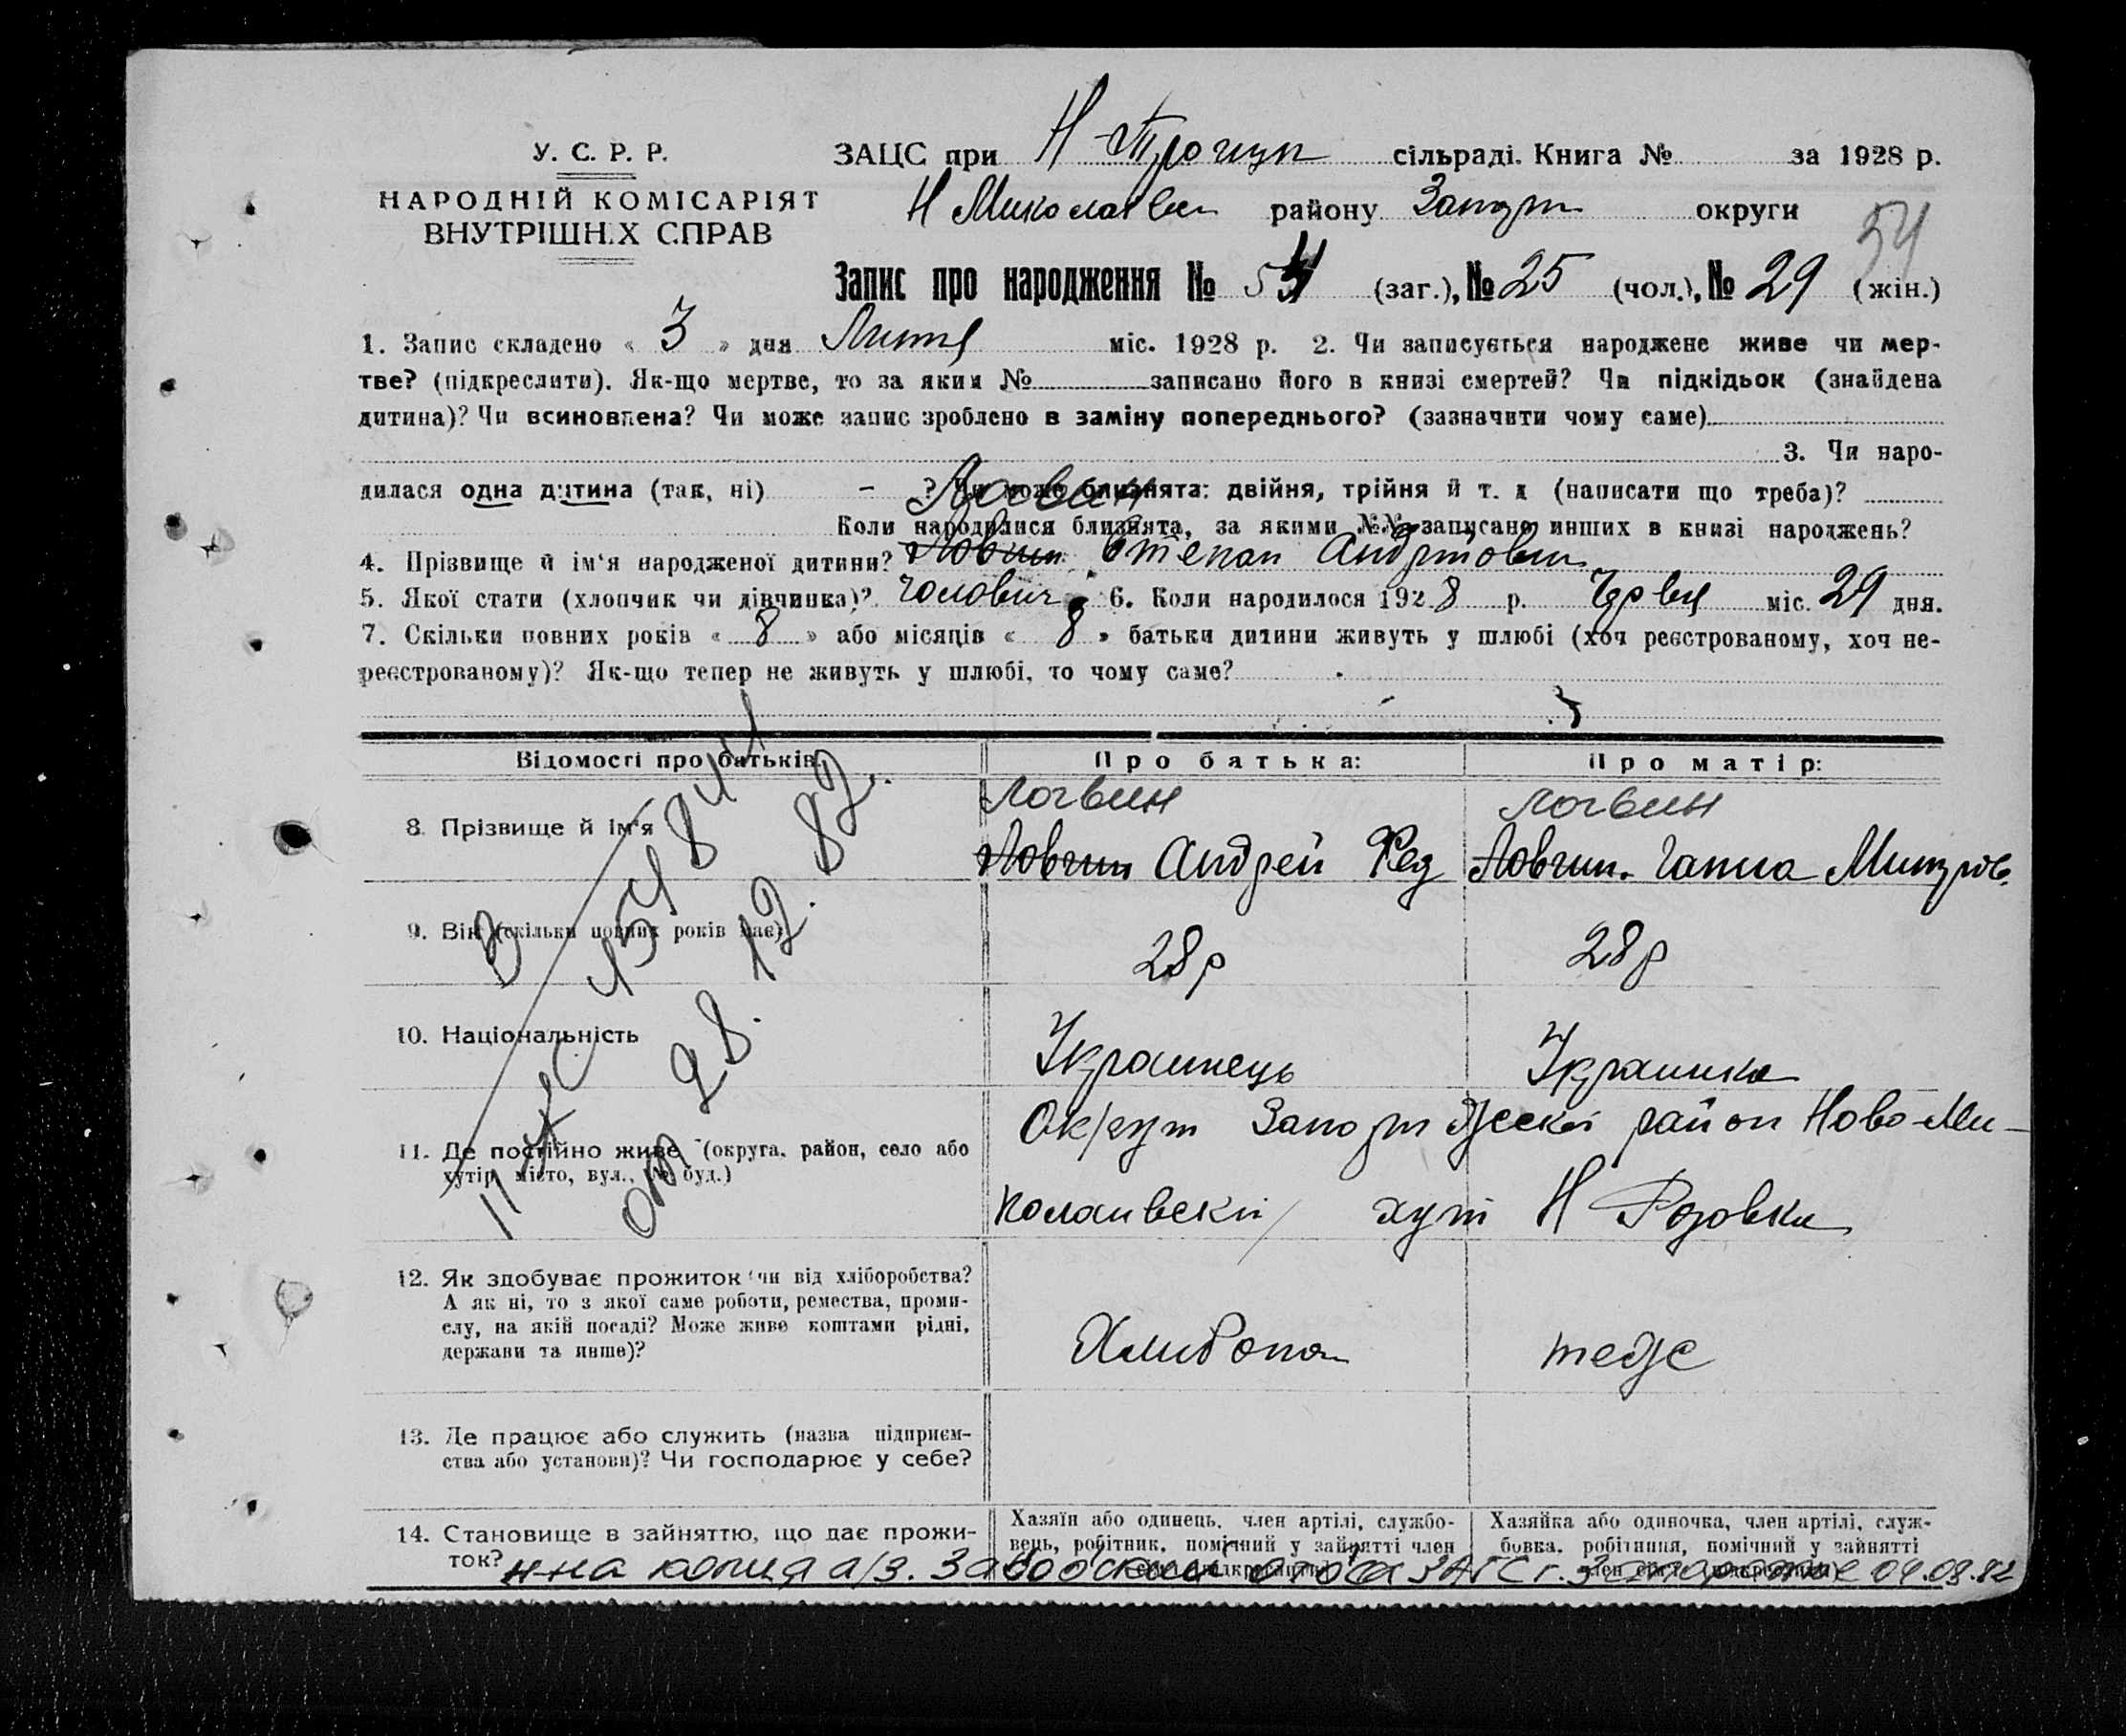 У. С. Р. Р.
НАРОДНІЙ КОМІСАРІЯТ
ВНУТРІШНІХ СПРАВ
ЗАЦС при Н сільраді. Книга № за 1928 р.
Н Миколаївск району Запор округи
54
Запис про народження № 54 (заг.), № 25 (чол.), № 29 (жін.)
1. Запис складено « 3 » дня Липня міс. 1928 р. 2. Чи записується народжене живе чи мер-
тве? (підкреслити). Як-що мертве, то за яким № записано його в книзі смертей? Чи підкідьок (знайдена
дитина)? Чи всиновлена? Чи може запис зроблено в заміну попереднього? (зазначити чому саме)
3. Чи наро-
дилася одна дитина (так, ні) – ? Чи може близнята: двійня, трійня й т. д (написати що треба)?
Логвин
Коли народилися близнята, за якими №№ записано инших в книзі народжень?
4. Прізвище й ім'я народженої дитини? Ловгин Степан
5. Якої стати (хлопчик чи дівчинка)? чоловіч 6. Коли народилося 1928 р. Червня міс. 29 дня.
7. Скільки повних років « 8 » або місяців « 8 » батьки дитини живуть у шлюбі (хоч реєстрованому, хоч не-
реєстрованому)? Як-що тепер не живуть у шлюбі, то чому саме?
Відомості про батьків Про батька: Про матір:
Логвин Логвин
8. Прізвище й ім'я Ловгин Андрей Фед Ловгин Ганна
9. Вік (скільки повних років має) 28 р 28 р
10. Національність Украинець Украинка
11. Де постійно живе (округа, район, село або
хутір, місто, вул., № буд.)
Округ район Ново-Ми-
хут Н
12. Як здобуває прожиток (чи від хліборобства?
А як ні, то з якої саме роботи, ремества, проми-
слу, на якій посаді? Може живе коштами рідні,
держави та инше)?
теже
13. Де працює або служить (назва підприєм-
ства або установи)? Чи господарює у себе?
14. Становище в зайняттю, що дає прожи-
ток?
Хазяїн або одинець, член артілі, службо-
вець, робітник, помічний у зайнятті член
Хазяйка або одиночка, член артілі, служ-
бовка, робітниця, помічний у зайнятті
копия а/з. ЗАГС г. 04.03.82
от 28. 12. 82.